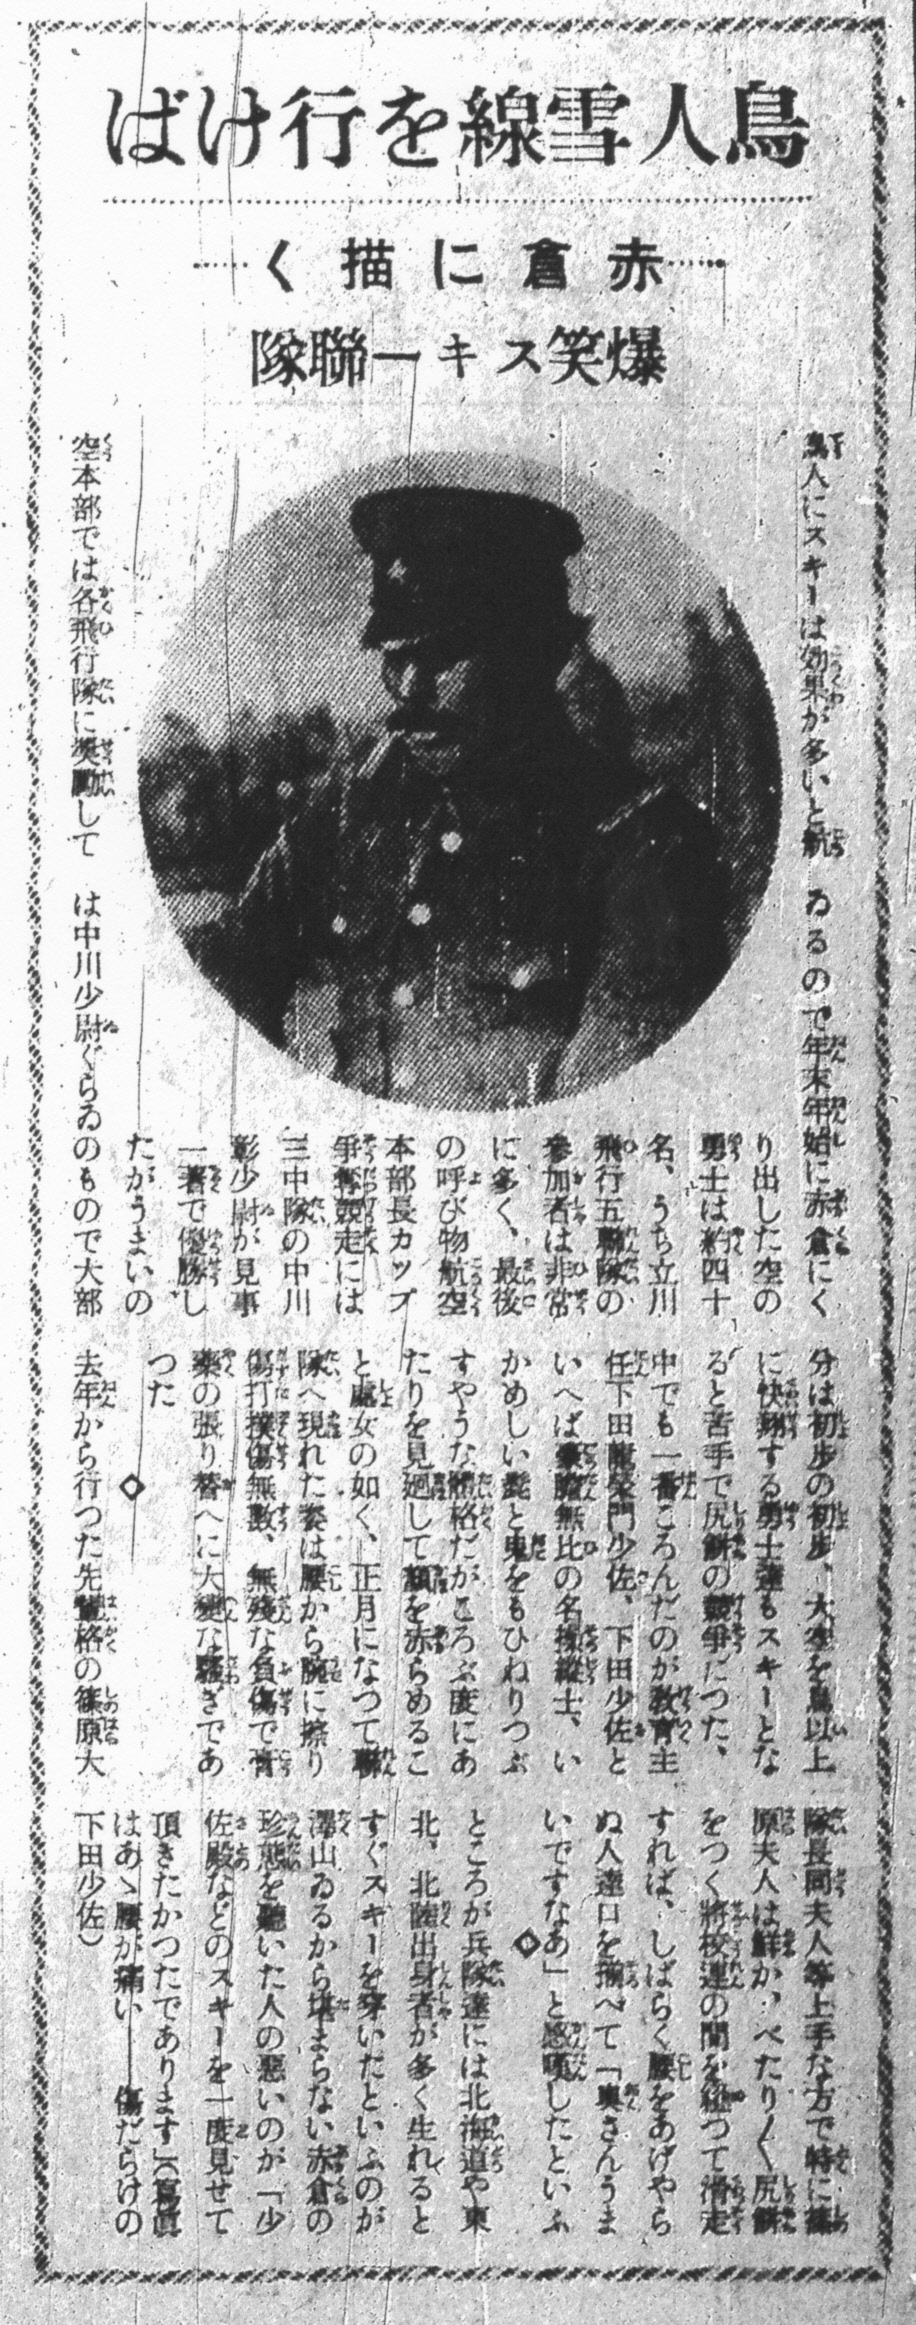 鳥人雪線を行けば
赤倉に描く
爆笑スキー聯隊
鳥人にスキーは効果が多いと航
空本部では各飛行隊に奨勵して
ゐるので年末年始に赤倉にく
り出した空の
勇士は約四十
名、うち立川
飛行五聯隊の
參加者は非常
に多く、最後
の呼び物航空
本部長カップ
爭奪競走には
三中隊の中川
彰少尉が見事
一著で優勝し
たがうまいの
は中川少尉ぐらゐのもので大部
分は初歩の初歩、大空を鳥以上
に快翔する勇士達もスキーとな
ると苦手で尻餅の競爭につた、
中でも一番ころんだのが教育主
任下田龍榮門少佐、下田少佐と
いへば豪膽無比の名操縦士、い
かめしい髭と東をもひねりつぶ
すやうな體格だがころぶ度にあ
たりを見廻して顔を赤らめるこ
と處女の如く、正月になつて聯
隊へ現れた姿は腰から腕に擦り
傷打撲傷無數、無殘な負傷で膏
藥の張り替へに大變な騷ぎであ
つた
◇
去年から行つた先輩格の篠原大
隊長同夫人等上手な方で特に篠
原夫人は鮮か、ぺたり〱尻餅
をつく將校連の間を縫つて滑走
すれば、しばらく腰をあげやら
ぬ人達口を揃へて「奥さんうま
いですなあ」と感嘆したといふ
◇
ところが兵隊達には北海道や東
北、北陸出身者が多く生れると
すぐスキーを穿いたといふのが
澤山ゐるから堪まらない赤倉の
珍態を聽いた人の惡いのが「少
佐殿などのスキーを一度見せて
頂きたかつたであります」(寫眞
はあゝ腰が痛い――傷だらけの
下田少佐)